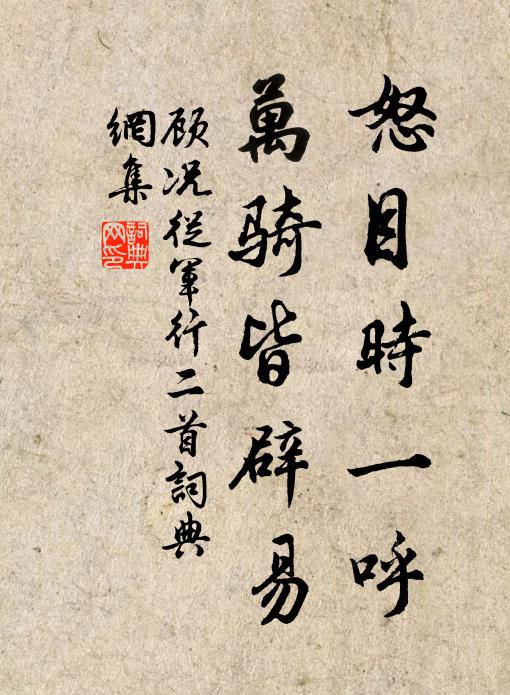 怒目時一呼
萬骑皆辟易
顾况從軍行二首詞典
網集
詞典
网印